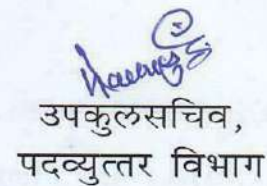 उपकुलसचिव,
पदव्युत्तर विभाग